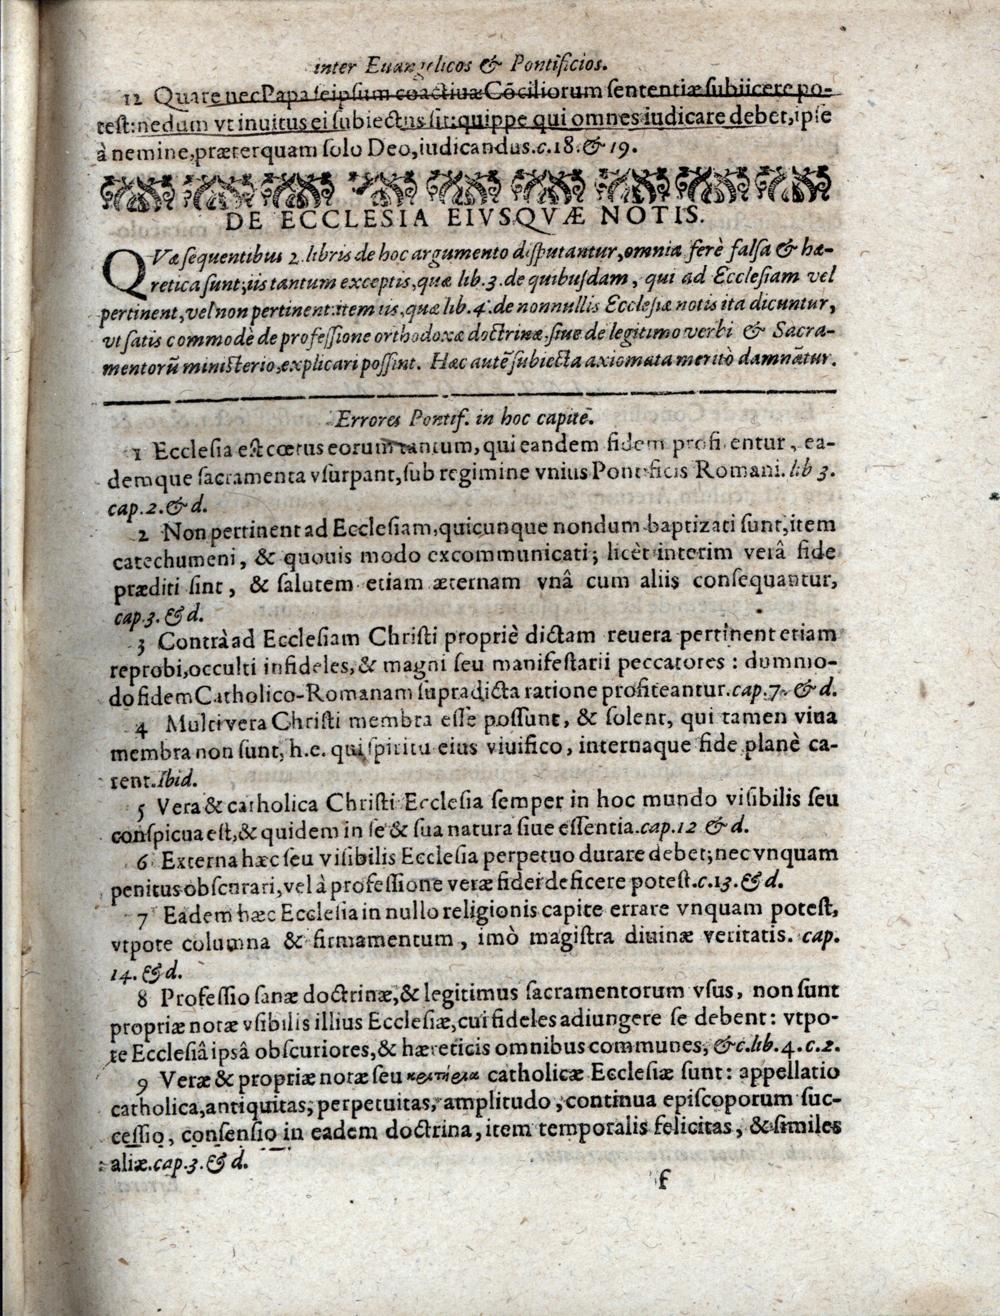 inter Euangelicos & Pontificios.
12 Quare nec Papa ſeipſum coactiuæ Cõciliorum ſententiæ ſubijcere po-
teſt: nedum vt inuitus ei ſubiectus ſit: quippe qui omnes iudicare debet, ipſe
à nemine, præterquam ſolo Deo, iudicandus. c. 18. & 19.
DE ECCLESIA EIVSQVÆ NOTIS.
QVæ ſequentibus 2. libris de hoc argumento diſputantur, omnia ferè falſa & hæ-
retica ſunt, iis tantum exceptis, quæ lib. 3. de quibuſdam, qui ad Eccleſiam vel
pertinent, vel non pertinent: item iis, quæ lib. 4. de nonnullis Eccleſiæ notis ita dicuntur,
vt ſatis commodè de profeſſione orthodoxæ doctrinæ, ſiue de legitimo verbi & Sacra-
mentorũ miniſterio, explicari poſſint. Hæc autẽ ſubiecta axiomata meritò damnãtur.
Errores Pontif. in hoc capite.
1 Eccleſia eſt cœtus eorum tantum, qui eandem fidem profitentur, ea-
demque ſacramenta vſurpant, ſub regimine vnius Pontificis Romani. lib 3.
cap. 2. & d.
2 Non pertinent ad Eccleſiam, quicunque nondum baptizati ſunt, item
catechumeni, & quouis modo excommunicati; licèt interim verâ fide
præditi ſint, & ſalutem etiam æternam vnâ cum aliis conſequantur,
cap. 3. & d.
3 Contrà ad Eccleſiam Chriſti propriè dictam reuera pertinent etiam
reprobi, occulti infideles, & magni ſeu manifeſtarii peccatores: dummo-
do fidem Catholico-Romanam ſupradicta ratione profiteantur. cap. 7. & d.
4 Multi vera Chriſti membra eſſe poſſunt, & ſolent, qui tamen viua
membra non ſunt, h.e. qui ſpiritu eius viuifico, internaque fide planè ca-
rent. Ibid.
5 Vera & catholica Chriſti Eccleſia ſemper in hoc mundo viſibilis ſeu
conſpicua eſt, & quidem in ſe & ſua natura ſiue eſſentia. cap. 12 & d.
6 Externa hæc ſeu viſibilis Eccleſia perpetuo durare debet; nec vnquam
penitus obſcurari, vel à profeſſione veræ fidei deficere poteſt. c. 13. & d.
7 Eadem hæc Eccleſia in nullo religionis capite errare vnquam poteſt,
vtpote columna & firmamentum, imò magiſtra diuinæ veritatis. cap.
14. & d.
8 Profeſſio ſanæ doctrinæ, & legitimus ſacramentorum vſus, non ſunt
propriæ notæ vſibilis illius Eccleſiæ, cui fideles adiungere ſe debent: vtpo-
te Eccleſiâ ipsâ obſcuriores, & hæreticis omnibus communes, &c. lib. 4. c. 2.
9 Veræ & propriæ notæ ſeu catholicæ Eccleſiæ ſunt: appellatio
catholica, antiquitas, perpetuitas, amplitudo, continua epiſcoporum ſuc-
ceſſio, conſenſio in eadem doctrina, item temporalis felicitas, & ſimiles
aliæ. cap. 3. & d.
f